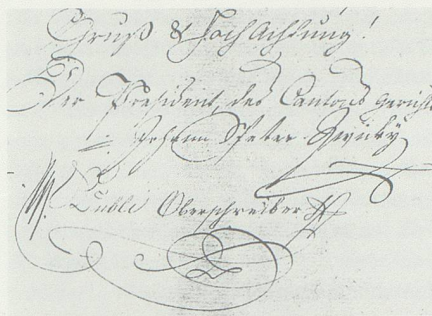 Gruß & Hochachtung!
Der President des Cantons Gerichts
Johann Peter Zwicky
Kubli Oberschreiber